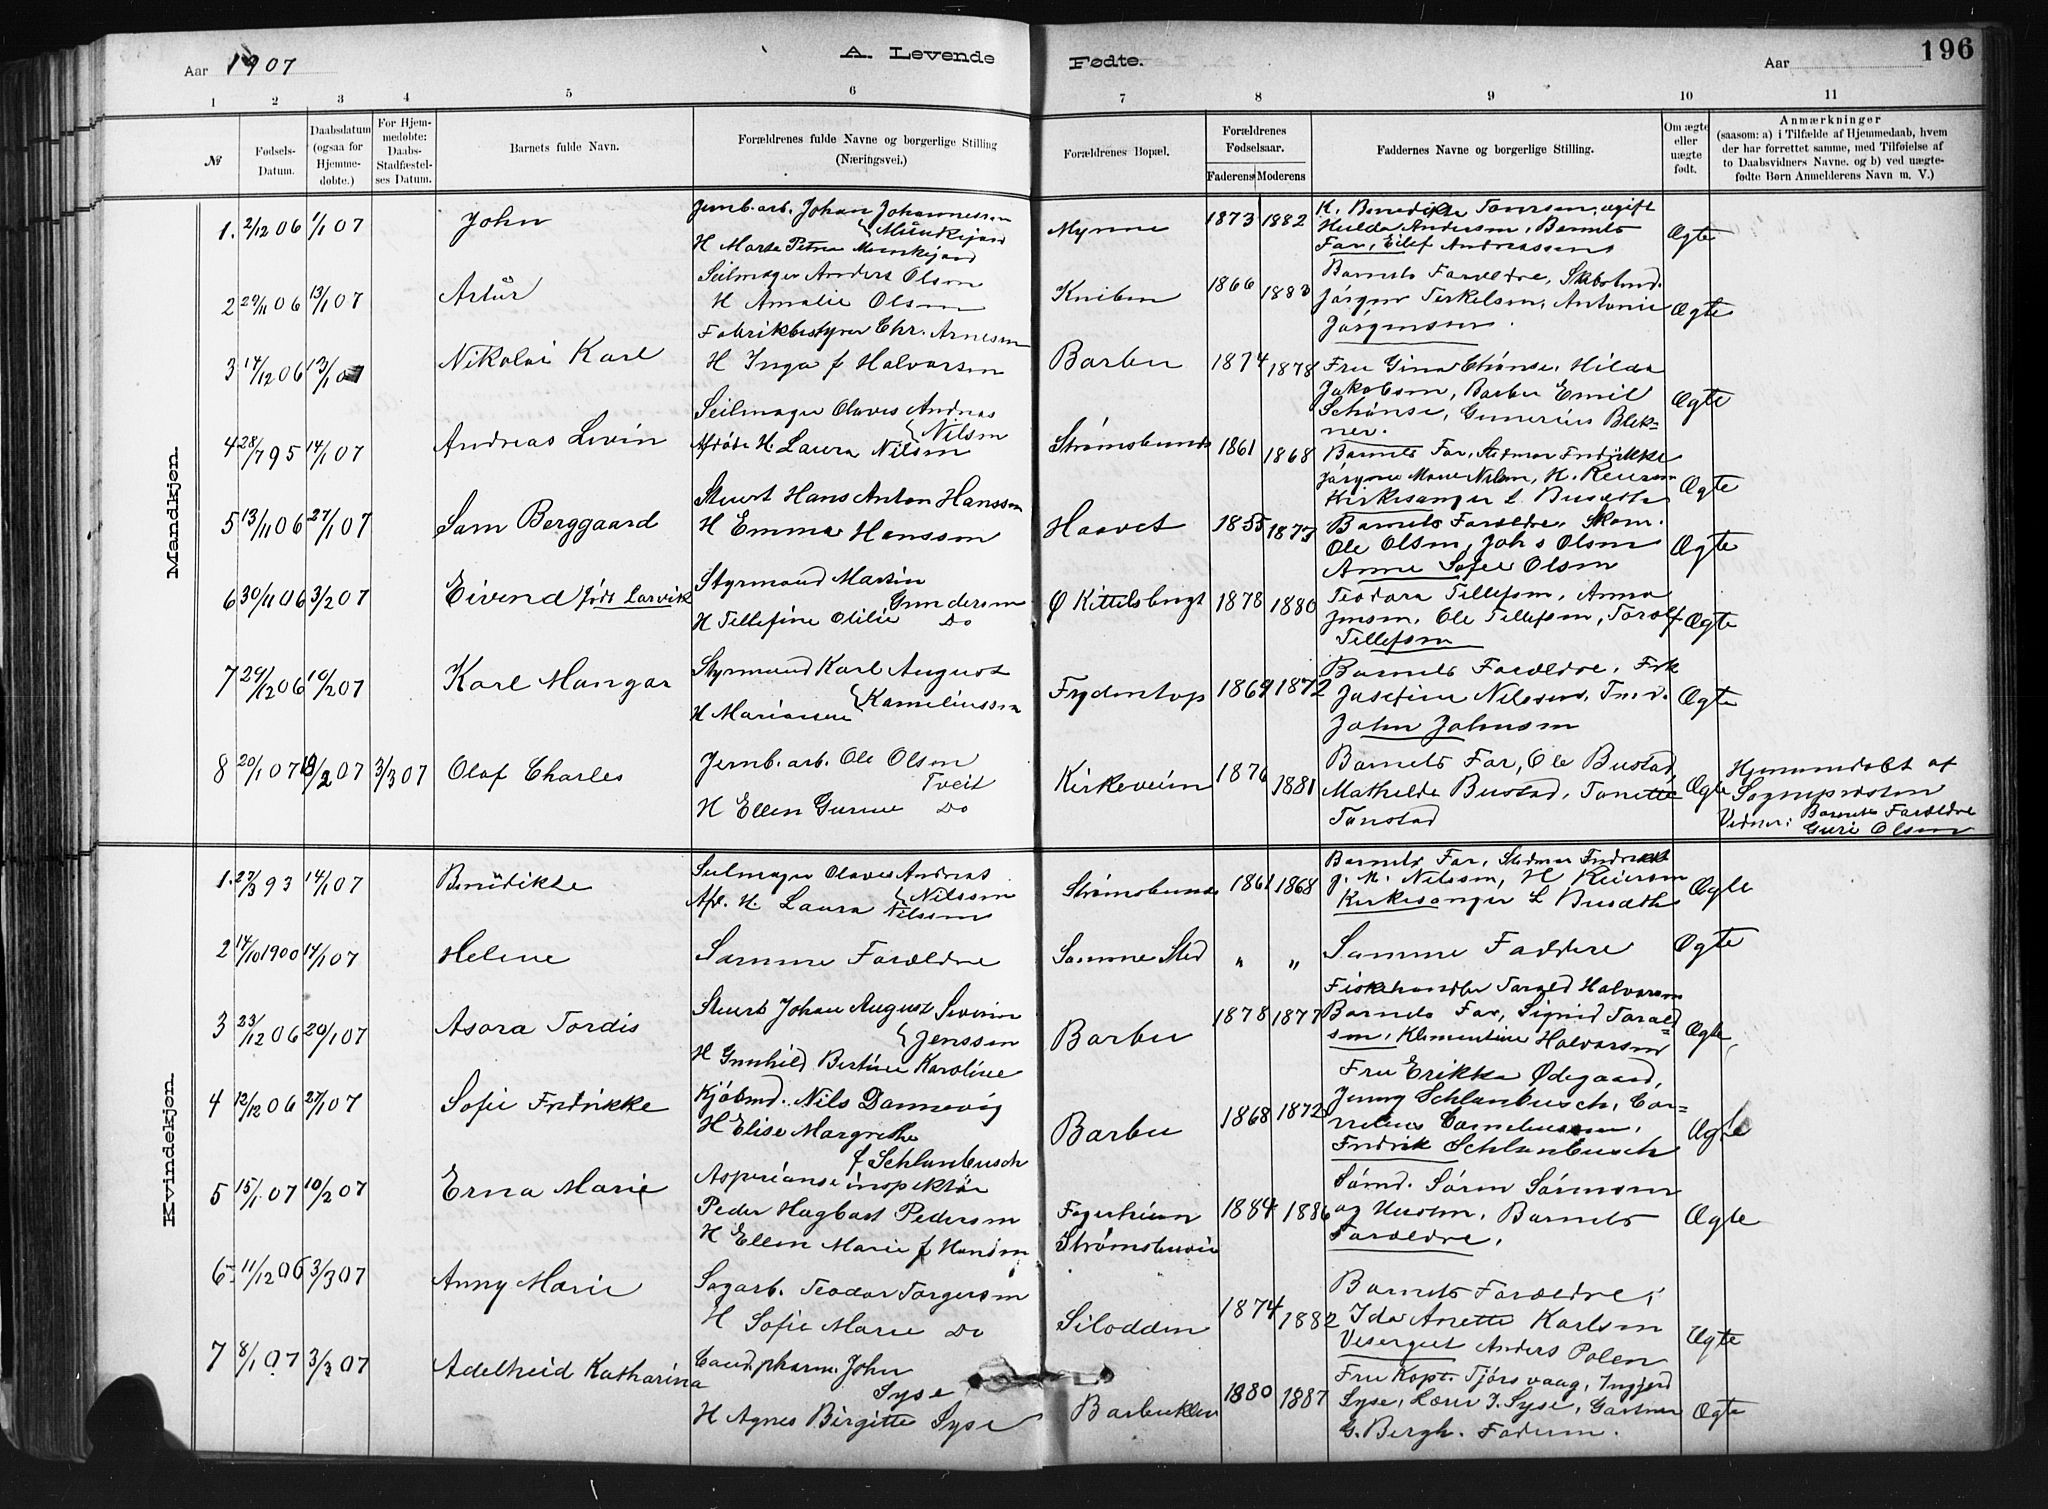 Aar 1907
A. Levende
Fødte.
Aar
196
1 2 3 4 5 6 7 8 9 10 11
№
Fødsels-
Datum.
Daabsdatum
(ogsaa for
Hjemme-
døbte.)
For Hjem-
medøbte:
Daabs-
Stadfæstel-
ses Datum.
Barnets fulde Navn.
Forældrenes fulde Navne og borgerlige Stilling
(Næringsvei.)
Forældrenes Bopæl.
Forældrenes
Fødselsaar.
Faderens Moderens
Faddernes Navne og borgerlige Stilling.
Om ægte
eller
uægte
født.
Anmærkninger
(saasom: a) i Tilfælde af Hjemmedaab, hvem
der har forrettet samme, med Tilføielse af
to Daabsvidners Navne. og b) ved uægte-
fødte Børn Anmelderens Navn m. V.)
Mandkjøn.
1. 2/12 06 1/1 07 John
Jernb. arb. Johan Johannessen
Munkejord
H Marta Petrea Munkejord
Myrene 1873 1882
K. Benedikte Tomrsen, ugift
Hulda Andersen, Barnets
Far, Eilef Andreassens
Ægte
2 29/11 06 13/1 07 Artur
Seilmager Anders Olsen
H Amalie Olsen
Kniben 1866 1883
Barnets Forældre, Skibstmd.
Jørgen Terkelsen, Antonie
Jørgensen.
Ægte
3 14/12 06 13/1 07 Nikolai Karl
Fabrikbestyrer Chr. Arnesen
H Inga f Halvorsen
Barbu 1874 1878
Fru Gina Thønse, Hilda
Jakobsen, Barber Emil
Schønse, Gunerius Blek-
ner.
Ægte
4 28/7 95 14/1 07 Andreas Levin
Seilmager Olaves Andreas
Nilsen
Afdøde H. Laura Nilsen
Strømsbunde 1861 1868
Barnets Far, Stedmor Fredrikke
Jørgine Marie Nilsen, H. Reiersen
Kirkesanger L Busæth
Ægte
5 13/11 06 27/1 07 Sam Berggaard
Stuert Hans Anton Hanssen
H Emma Hanssen
Haavet 1855 1877
Barnets Forældre, Skom.
Ole Olsen, Johs Olsen
Anne Sofie Olsen
Ægte
6 30/11 06 3/2 07 Eivind født Larvik
Styrmand Martin
Gundersen
H Tellefine Otilie Do
Ø Kittelsbugt 1878 1880
Teodora Tellefsen, Anna
Jensen, Ole Tellefsen, Torolf
Tellefsen
Ægte
7 24/12 06 10/2 07 Karl Mangar
Styrmand Karl August
Korneliussen
H Mariane
Frydentop 1869 1872
Barnets Forældre, Frk
Josefine Nilssen, Tmd.
John Johnsen
Ægte
8 20/1 07 18/2 07 3/3 07 Olaf Charles
Jernb. arb. Ole Olsen
Tveit
H Ellen Gurine Do
Kirkeveien 1876 1881
Barnets Far, Ole Bustad,
Mathilde Bustad, Tonette
Tonstad
Ægte
Hjemmedøbt af
Sognepresten
Vidner: Barnets Forældre
Guri Olsen
Kvindekjøn.
1. 27/3 93 14/1 07 Benedikte
Seilmager Olaves Andreas
Nilssen
Afd. H. Laura Nilssen
Strømsbunde 1861 1868
Barnets Far, Stedmor Fredrikke
J. M. Nilssen, H Reiersen
Kirkesanger L Busæth
Ægte
2 14/10 1900 14/1 07 Helene
Samme Forældre
Samme Sted " "
Samme Faddere
Ægte
3 23/12 06 20/1 07 Asora Tordis
Stuert Johan August Severin
Jenssen
H Gunhild Bertine Karoline
Barbu 1878 1877
Fiskehandler Torald Halvorsen
Barnets Far, Signid Torald-
sen, Klementine Halvorsen
Ægte
4 12/12 06 27/1 07 Sofie Fredrikke
Kjøbmd. Nils Dannevig
H Elise Margrethe
f Schlanbusch
Barbu 1868 1872
Fru Erikka Ødegaard,
Jenny Schlanbusch, Cor-
nelius Corneliussen,
Fredrik Schlanbusch
Ægte
5 15/1 07 10/2 07 Erna Marie
Asperianseinspektør
Peder Hagbart Pedersen
H Ellen Marie f Hansen
Fagerheim
Strømsbuveie
1884 1886
Sømd. Søren Sørensen
og Hustru, Barnets
Forældre.
Ægte
6 11/12 06 3/3 07 Anny Marie
Sagarb. Teodor Torgersen
H Sofie Marie Do
Silodden 1874 1882
Barnets Forældre,
Ida Anette Karlsen
Visergut Anders Polen
Ægte
7 8/1 07 3/3 07 Adelheid Katharina
Cand. pharm. John
Syse
H Agnes Birgitte Syse
Barbuklev 1880 1887
Fru Kapt. Tjørsvaag, Ingjerd
Syse, Lærer J. Syse, Gartner
G. Bergh. Faderen.
Ægte